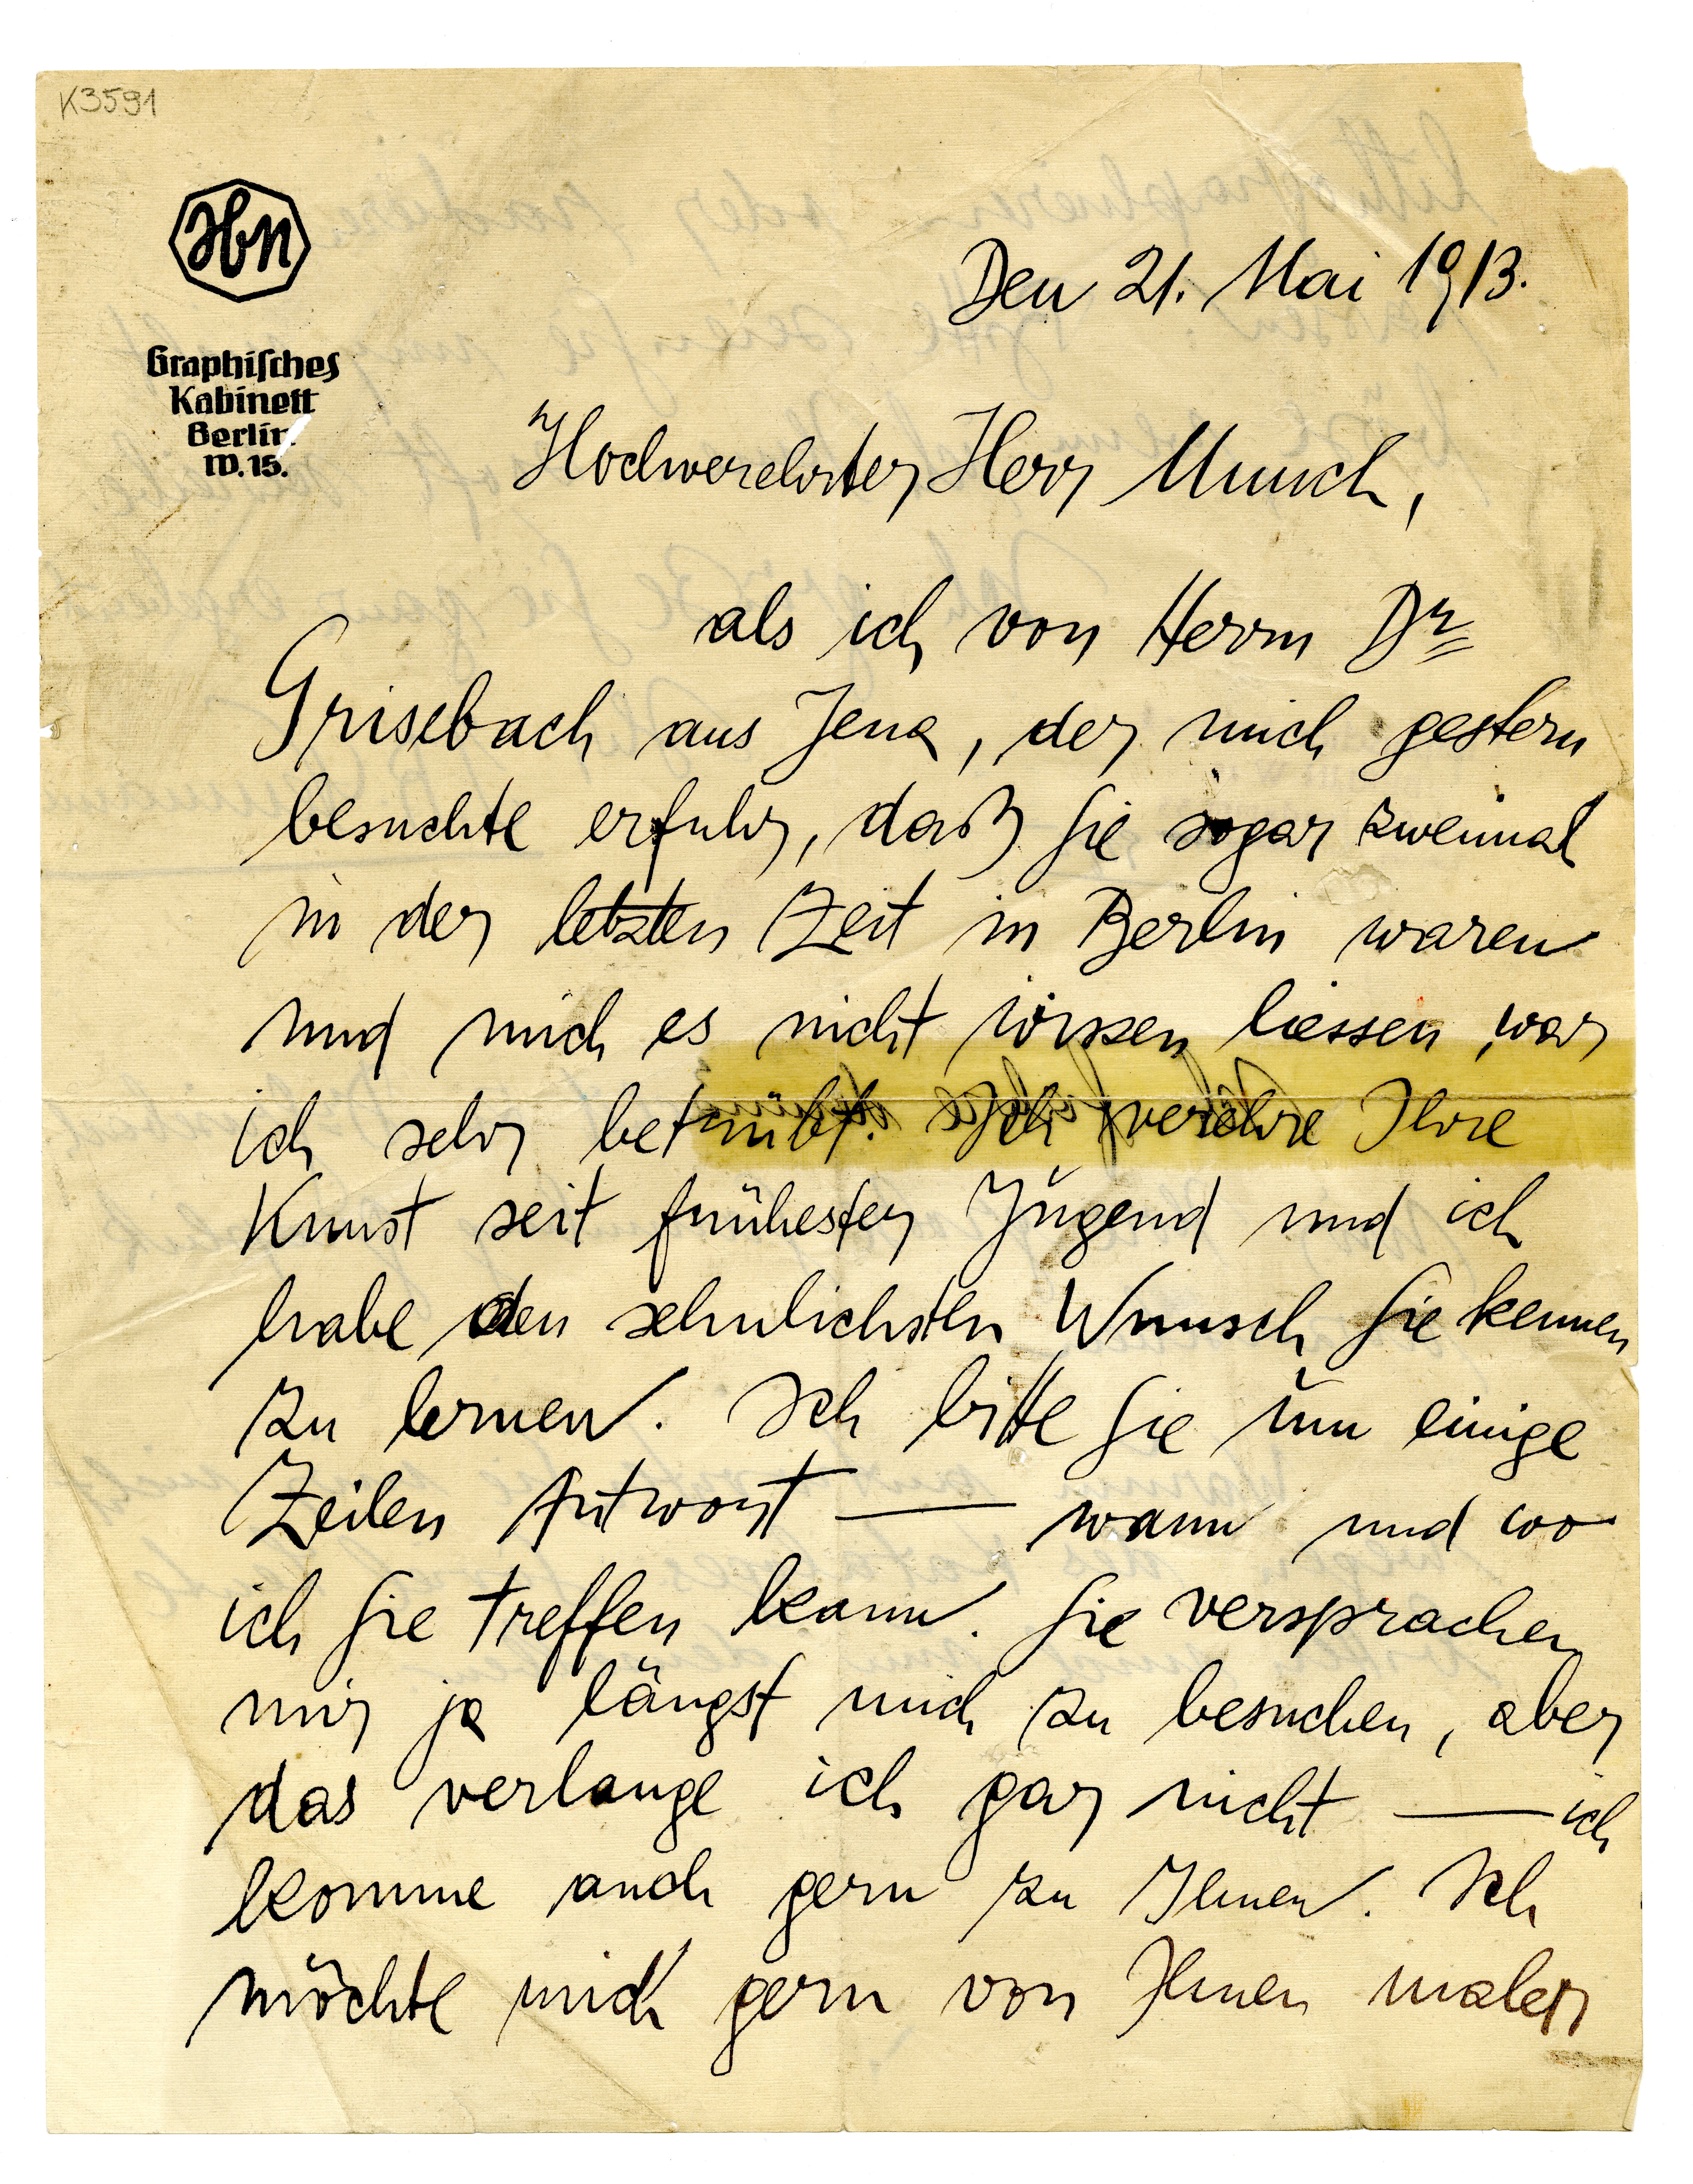 K3591
Jbn
Graphiſches
Kabinett
Berlin
W.15.
Den 21. Mai 1913.
Hochverehrter Herr Munch,
als ich von Herrn Dr
Grisebach aus Jena, der mich gestern
besuchte erfuhr, daß Sie sogar zweimal
in der letzten Zeit in Berlin waren
und mich es nicht wissen liessen, war
ich sehr betrübt. Ich verehre Ihre
Kunst seit frühester Jugend und ich
habe den sehnlichsten Wunsch Sie kennen
zu lernen. Ich bitte Sie um einige
Zeilen Antwort — wann und wo
ich Sie treffen kann. Sie versprachen
mir ja längst mich zu besuchen, aber
das verlange ich gar nicht — ich
komme auch gern zu Ihnen. Ich
möchte mich gern von Ihnen malen